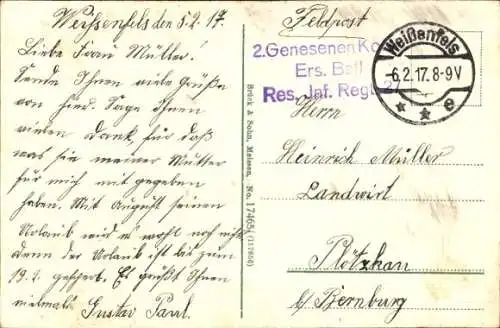 Weissenfels den 5.2.17.
Liebe Frau Müller!
Sende Ihnen viele Grüße
von hier. Sage Ihnen
vielen Dank, für daß
was sie meiner Mutter
für mich mit gegeben
haben. Mit August seinen
Urlaub wird es wohl noch nichts
denn der Urlaub ist bis zum
19.2. gesperrt. Es grüßt Ihnen
vielmals Gustav Paul.
Brück & Sohn, Meissen, No. 17465
Feldpost
2. Genesenen
Ers. Batl
Res. Inf. Regt.
Weißenfels
-6.2.17.8-9V
* * e
Herrn
Heinrich Müller
Landwirt
Plötzkau
b/Bernburg